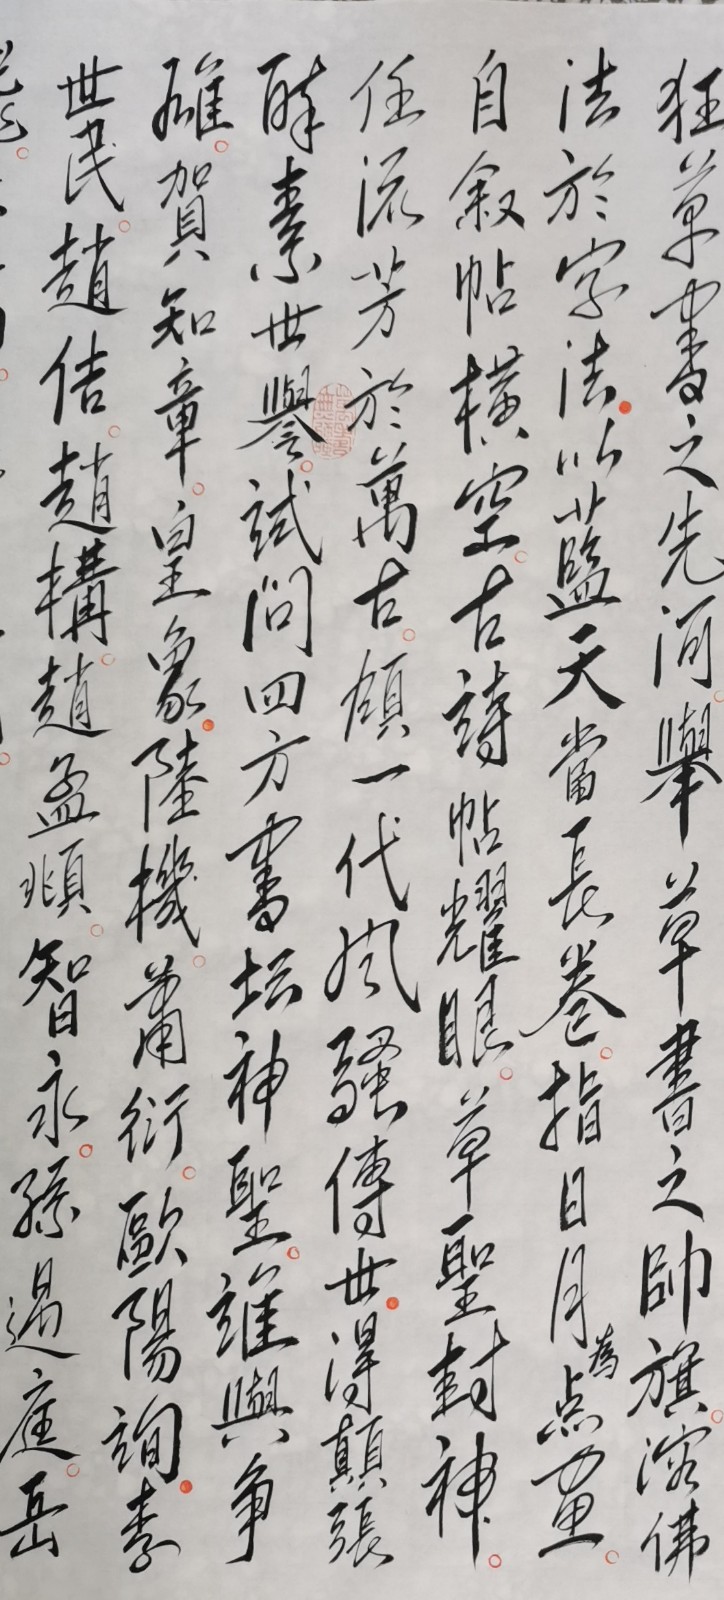 狂草書之先河舉草書之帥旗溶佛
法於字法以藍天當長卷指日月為点画
自叙帖橫空古詩帖耀眼草聖封神
任流芳於萬古領一代風騷傳世得顛張
醉素世譽試問四方書坛神聖誰與争
雄賀知章皇象陸機蕭衍歐陽詢李
世民趙佶趙構趙孟頫智永孫過庭岳